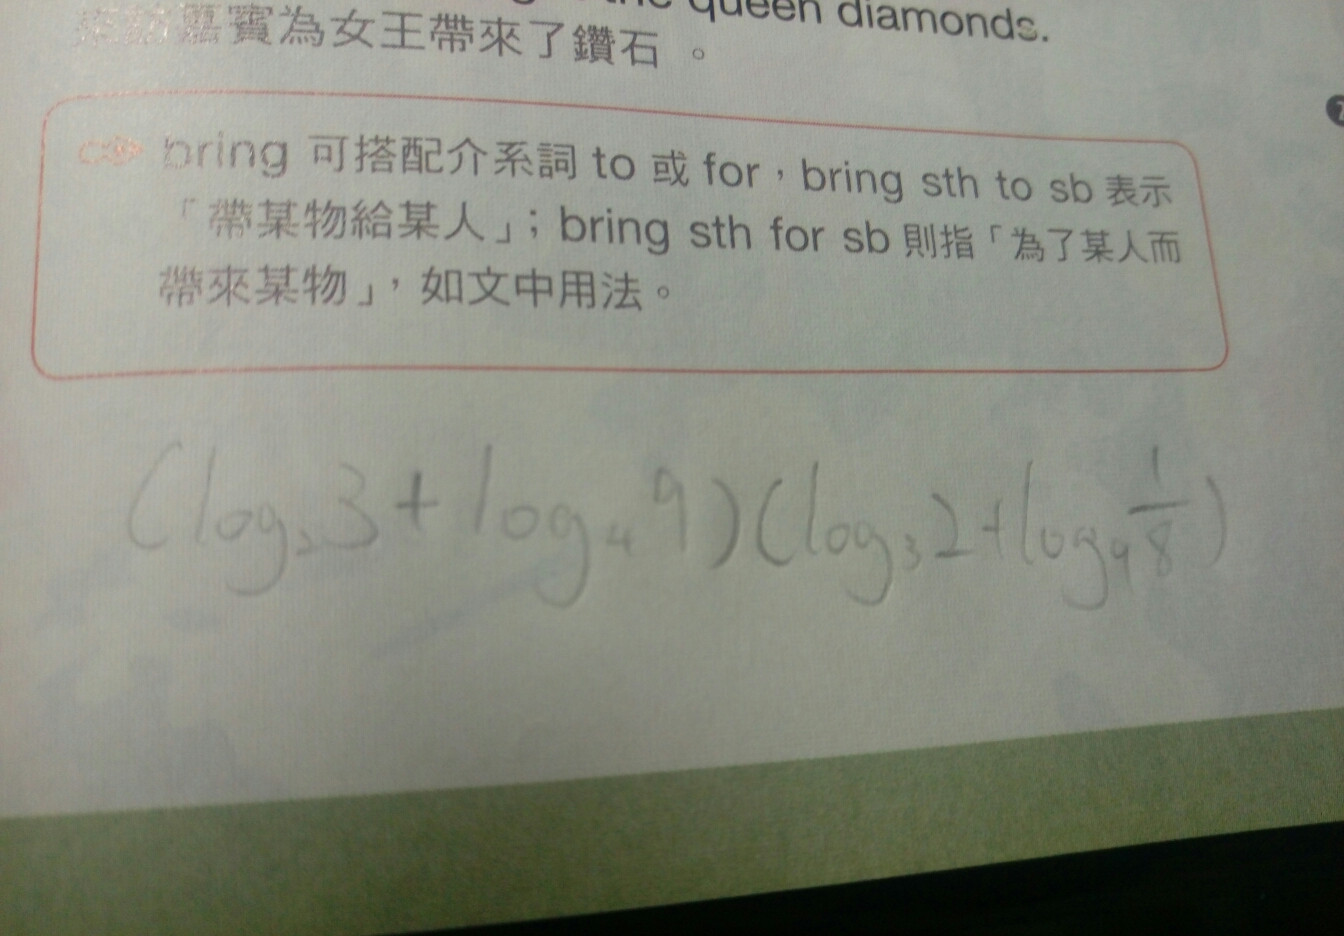 queen diamonds.
嘉賓為女王帶來了鑽石。
bring 可搭配介系詞 to 或 for，bring sth to sb 表示
「帶某物給某人」；bring sth for sb 則指「為了某人而
帶來某物」，如文中用法。
(log₂3+log₄9)(log₃2+log₉1/8)